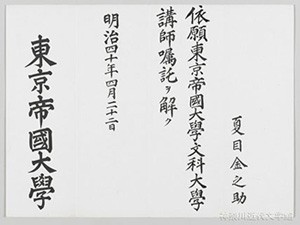 夏目金之助
依願東京帝國大學文科大學
講師嘱託ヲ解ク
明治四十年四月二十二日
東京帝國大學
神奈川近代文学館